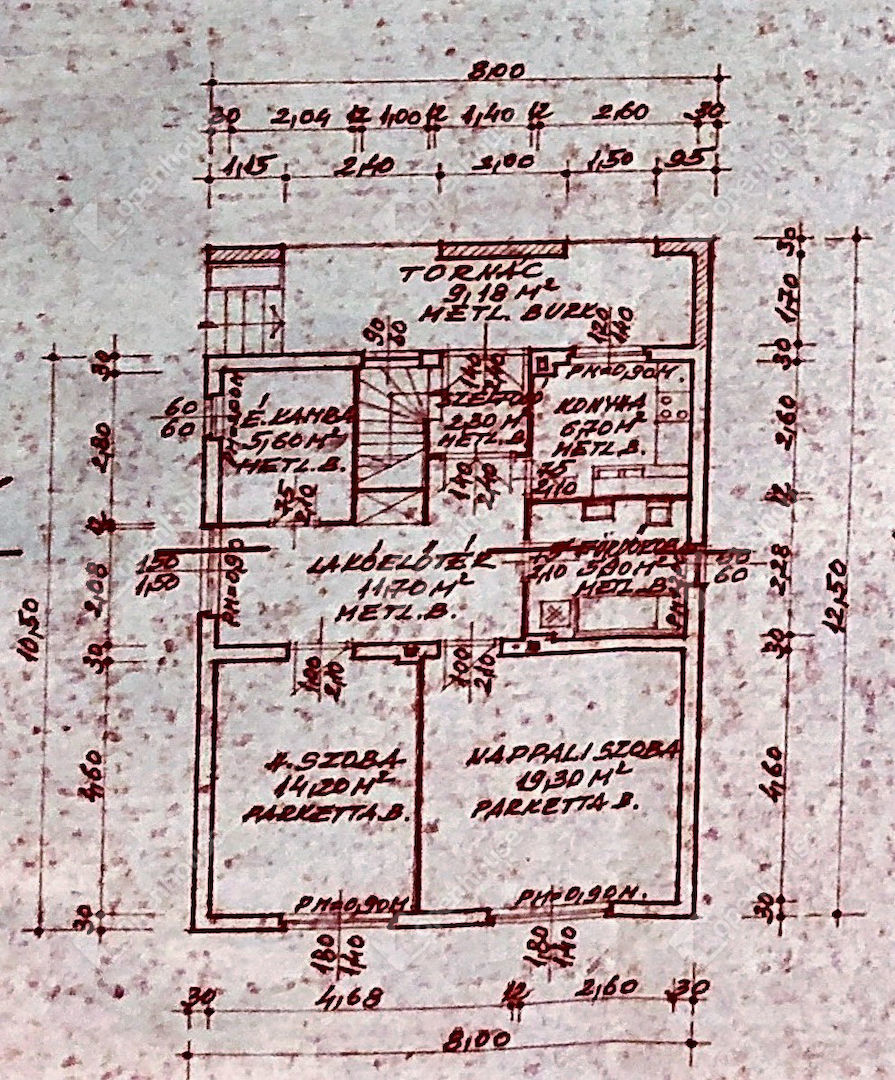 8,00
30 2,04 12 1,00 12 1,40 12 2,60 30
1,15 2,40 2,00 1,50 95
TORNÁC
9,18 M²
METL. BURK.
30
1,70
30
2,60
12
2,28
30
4,60
30
12,50
30
2,80
12
2,08
30
4,60
30
10,50
90
60
140
240
120
140
PM=0,90M.
60
60
É. KAMRA
5,60 M²
METL. B.
75
210
2,30 M²
METL. B.
140
240
KONYHA
6,70 M²
METL. B.
75
210
150
150
PM=0,90
LAKÓELŐTÉR
11,70 M²
METL. B.
210
FÜRDŐSZOBA
5,90 M²
METL. B.
60
60
100
210
100
210
H. SZOBA
14,20 M²
PARKETTA B.
NAPPALI SZOBA
19,30 M²
PARKETTA B.
PM=0,90M
PM=0,90M.
180
140
180
140
30 4,68 12 2,60 30
8,00